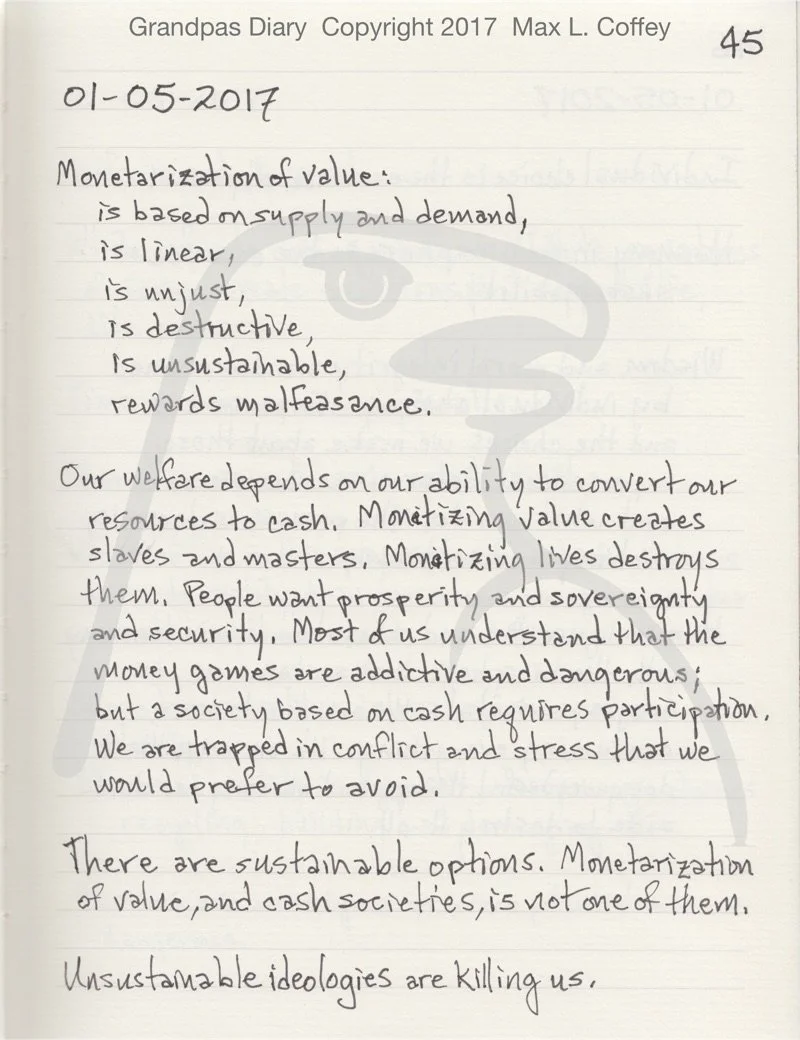 Grandpas Diary Copyright 2017 Max L. Coffey
45
01-05-2017
Monetarization of value:
is based on supply and demand,
is linear,
is unjust,
is destructive,
is unsustainable,
rewards malfeasance.
Our welfare depends on our ability to convert our
resources to cash. Monitizing value creates
slaves and masters. Monitizing lives destroys
them. People want prosperity and sovereignty
and security. Most of us understand that the
money games are addictive and dangerous;
but a society based on cash requires participation.
We are trapped in conflict and stress that we
would prefer to avoid.
There are sustainable options. Monetarization
of value, and cash societies, is not one of them.
Unsustainable ideologies are killing us.